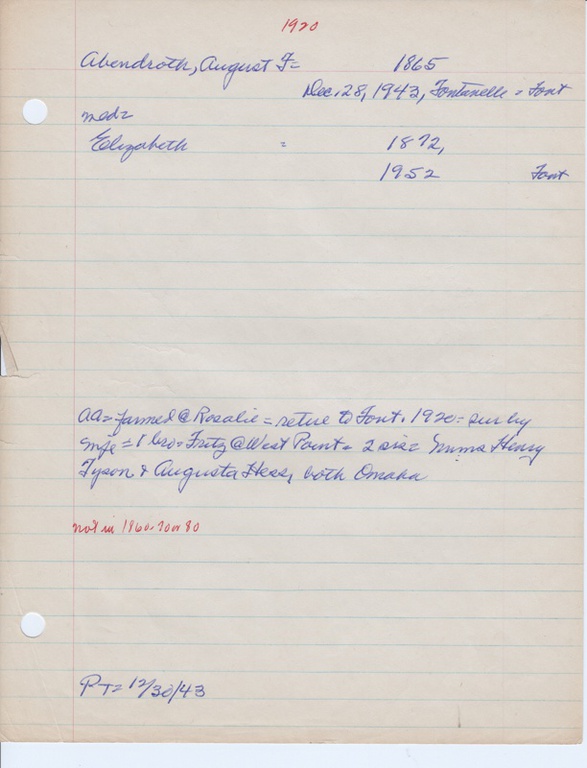 1920
Abendroth, August F= 1865
Dec. 28, 1943, Fontanelle = Font
med=
Elizabeth = 1872,
1952 Font
AA= farmed @ Rosalie = retire to Font. 1920 = sur by
wife = 1 bro = Fritz @ West Point = 2 sis = Henry
Tyson & Augusta Hess, both Omaha
not in 1860-70 or 80
PT= 12/30/43